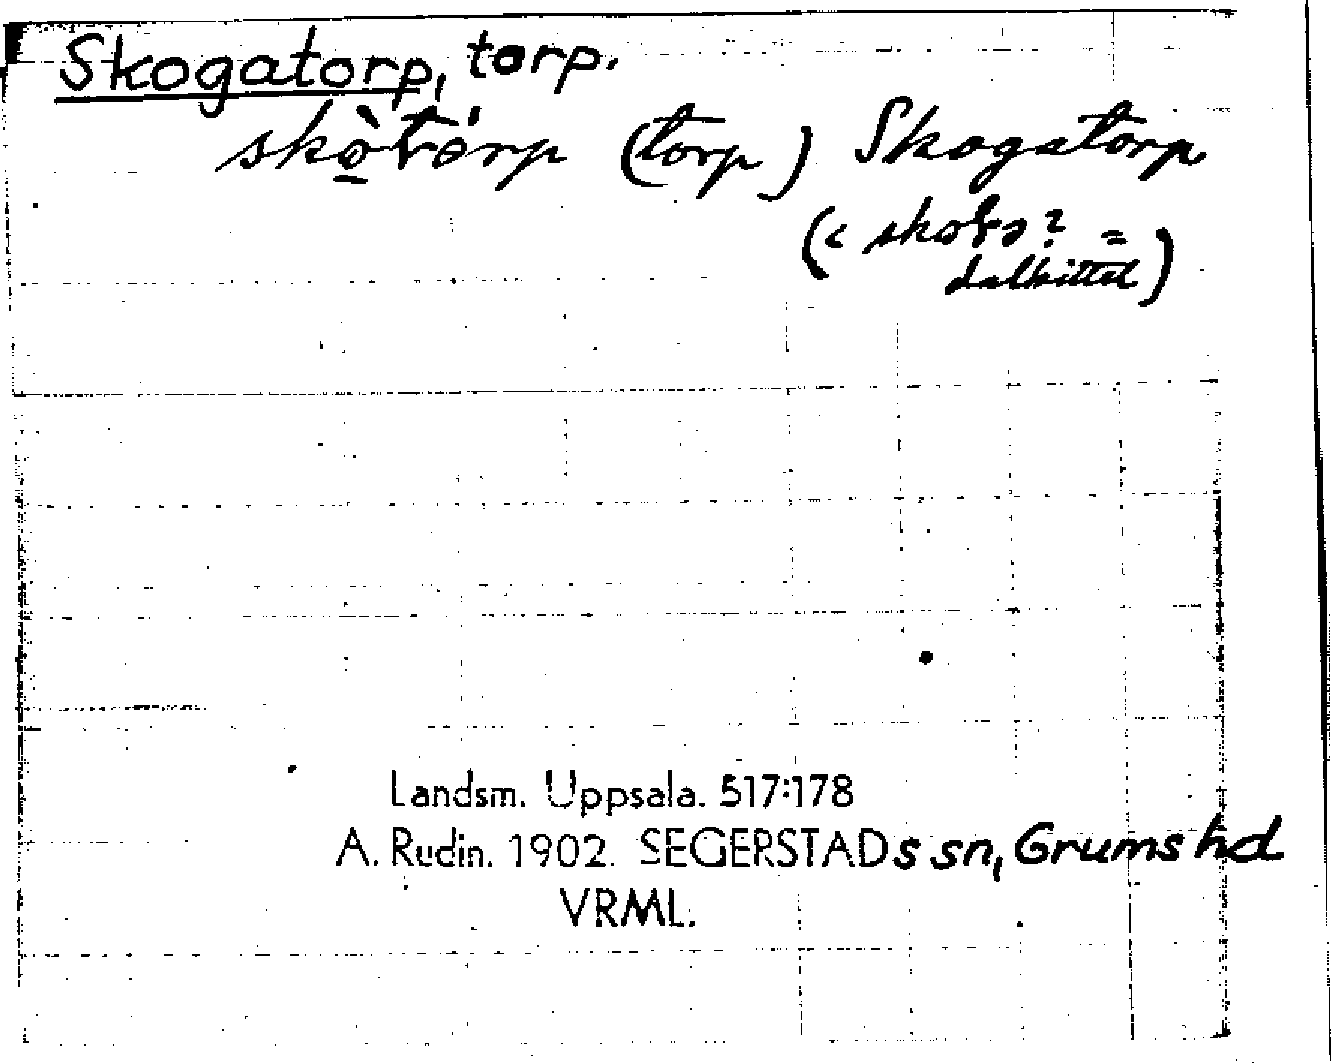 Skogatorp, torp.
skò̱tórp (torp) Skogatorp
(< =
)
Landsm. Uppsala. 517:178
A. Rudin. 1902. SEGERSTADs sn, Grums hd
VRML.